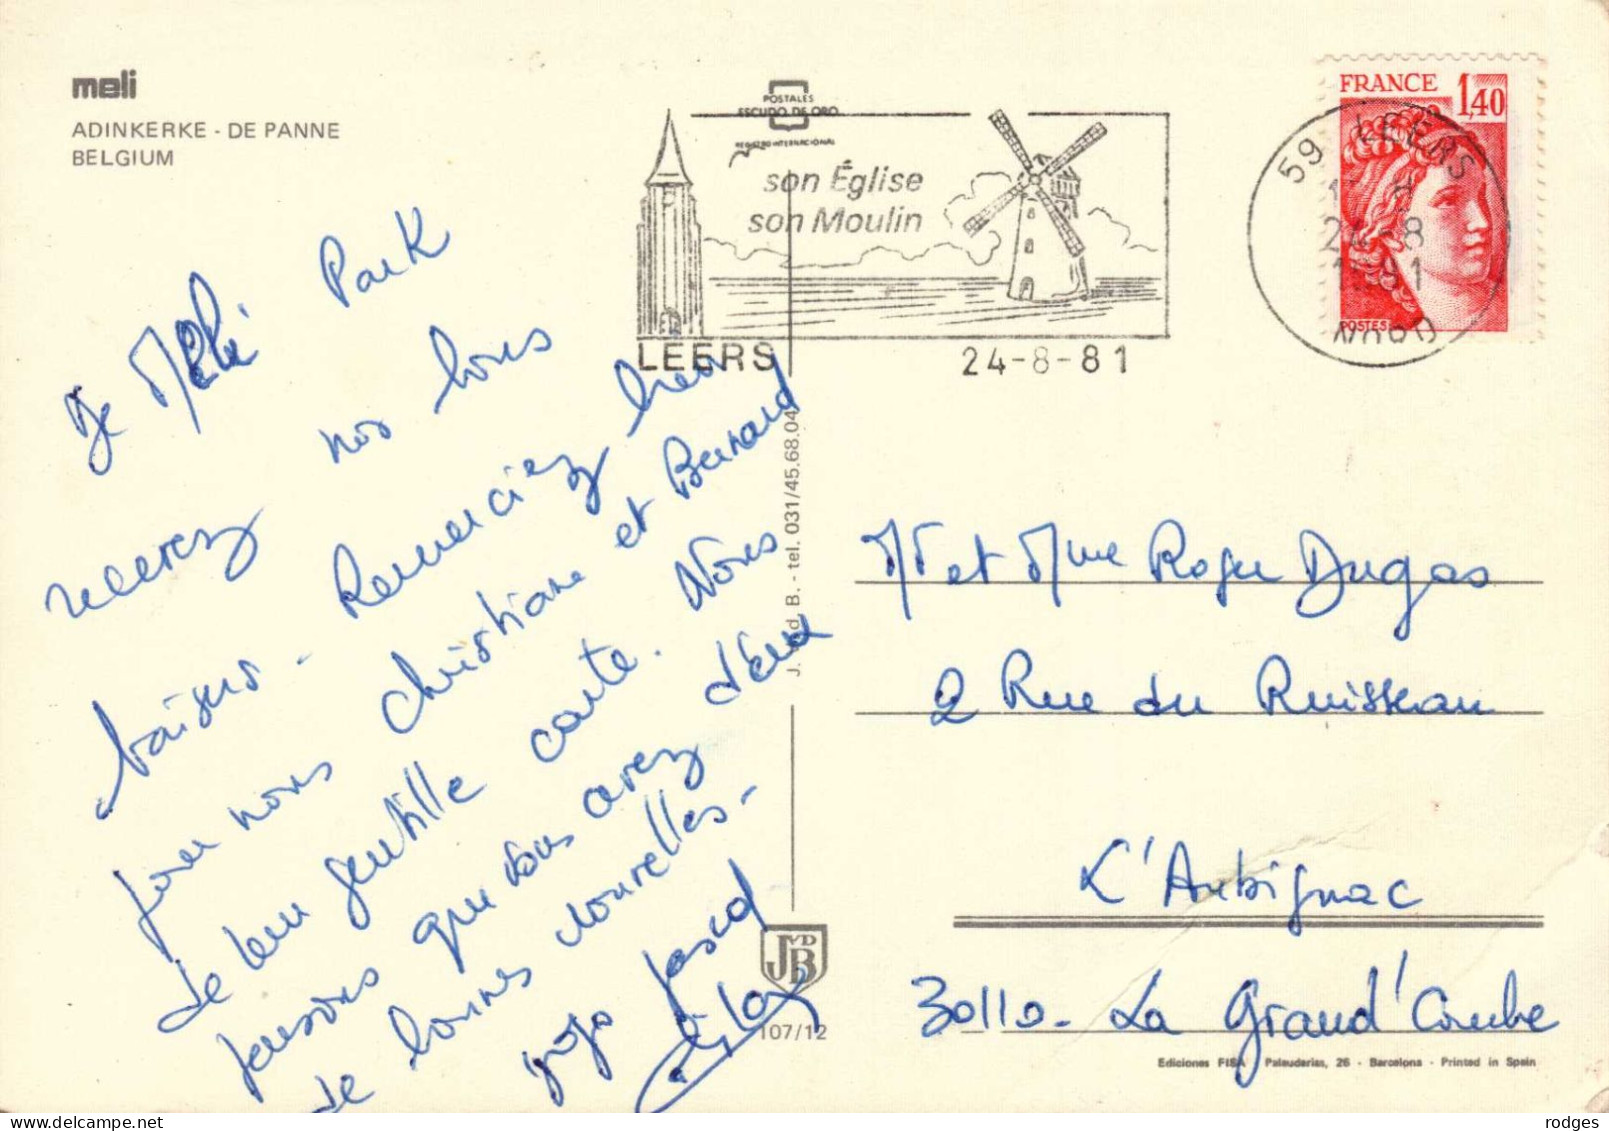 meli
ADINKERKE - DE PANNE
BELGIUM
POSTALES
ESCUDO DE ORO
REGISTRO INTERNACIONAL
son Église
son Moulin
LEERS
24-8-81
FRANCE
1,40
POSTES
59 LEERS
24-8
1981
NORD
De Méli Park
recevez nos bons
baisers - Remerciez bien
pour nous Christiane et Bernard
de leur gentille carte. Nous
pensons que vous avez d'eux
de bonnes nouvelles -
Pascal
J. d. B. - tel. 031/45.68.04
JVDB
107/12
Mr et Mme Roger Dugas
2 Rue du Ruisseau
L'Aubignac
30110 - La Grand'Combe
Ediciones FISA Palauderias, 26 - Barcelona - Printed in Spain
rodges